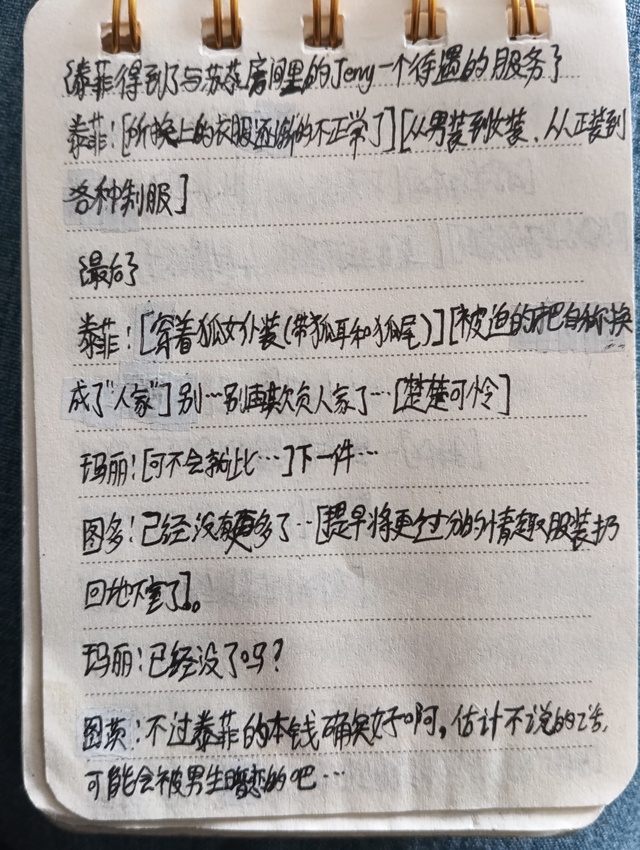 {泰菲得到了与苏蕊房间里的Jerry一个待遇的服务}
泰菲:[所换上的衣服逐渐的不正常了][从男装到女装、从正装到
各种制服]
{最后}
泰菲:[穿着狐女仆装(带狐耳和狐尾)][被迫的把自称换
成了"人家"]别…别再欺负人家了…[楚楚可怜]
玛丽:[可不会就此…]下一件…
图多:已经没有更多了…[提早将更过分的情趣服装扔
回地下室了]。
玛丽:已经没了吗?
图茨:不过泰菲的本钱确实好啊,估计不说的话,
可能会被男生暗恋的吧…